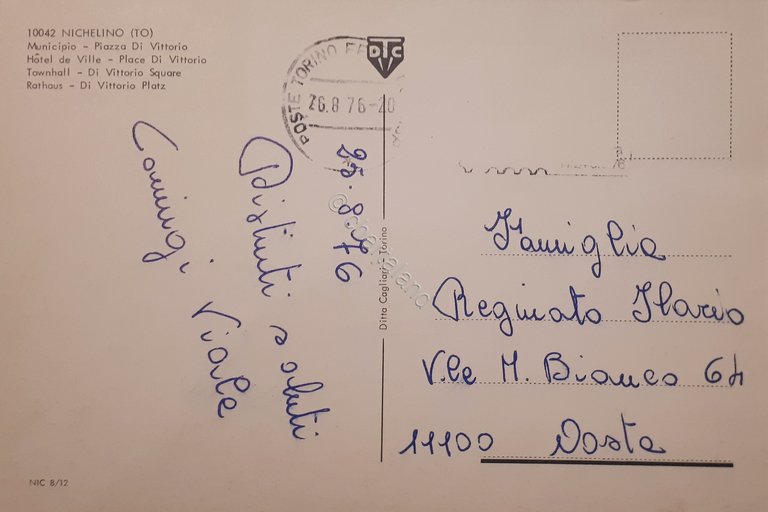 10042 NICHELINO (TO)
Municipio - Piazza Di Vittorio
Hôtel de Ville - Place Di Vittorio
Townhall - Di Vittorio Square
Rathaus - Di Vittorio Platz
POSTE TORINO FE
26.8 76-20
DTC
25.8.76
Distinti saluti
Coniugi Viale
Ditta Cagliari - Torino
Famiglia
Reginato Ilario
V.le M. Bianco 64
11100 Aosta
NIC 8/12